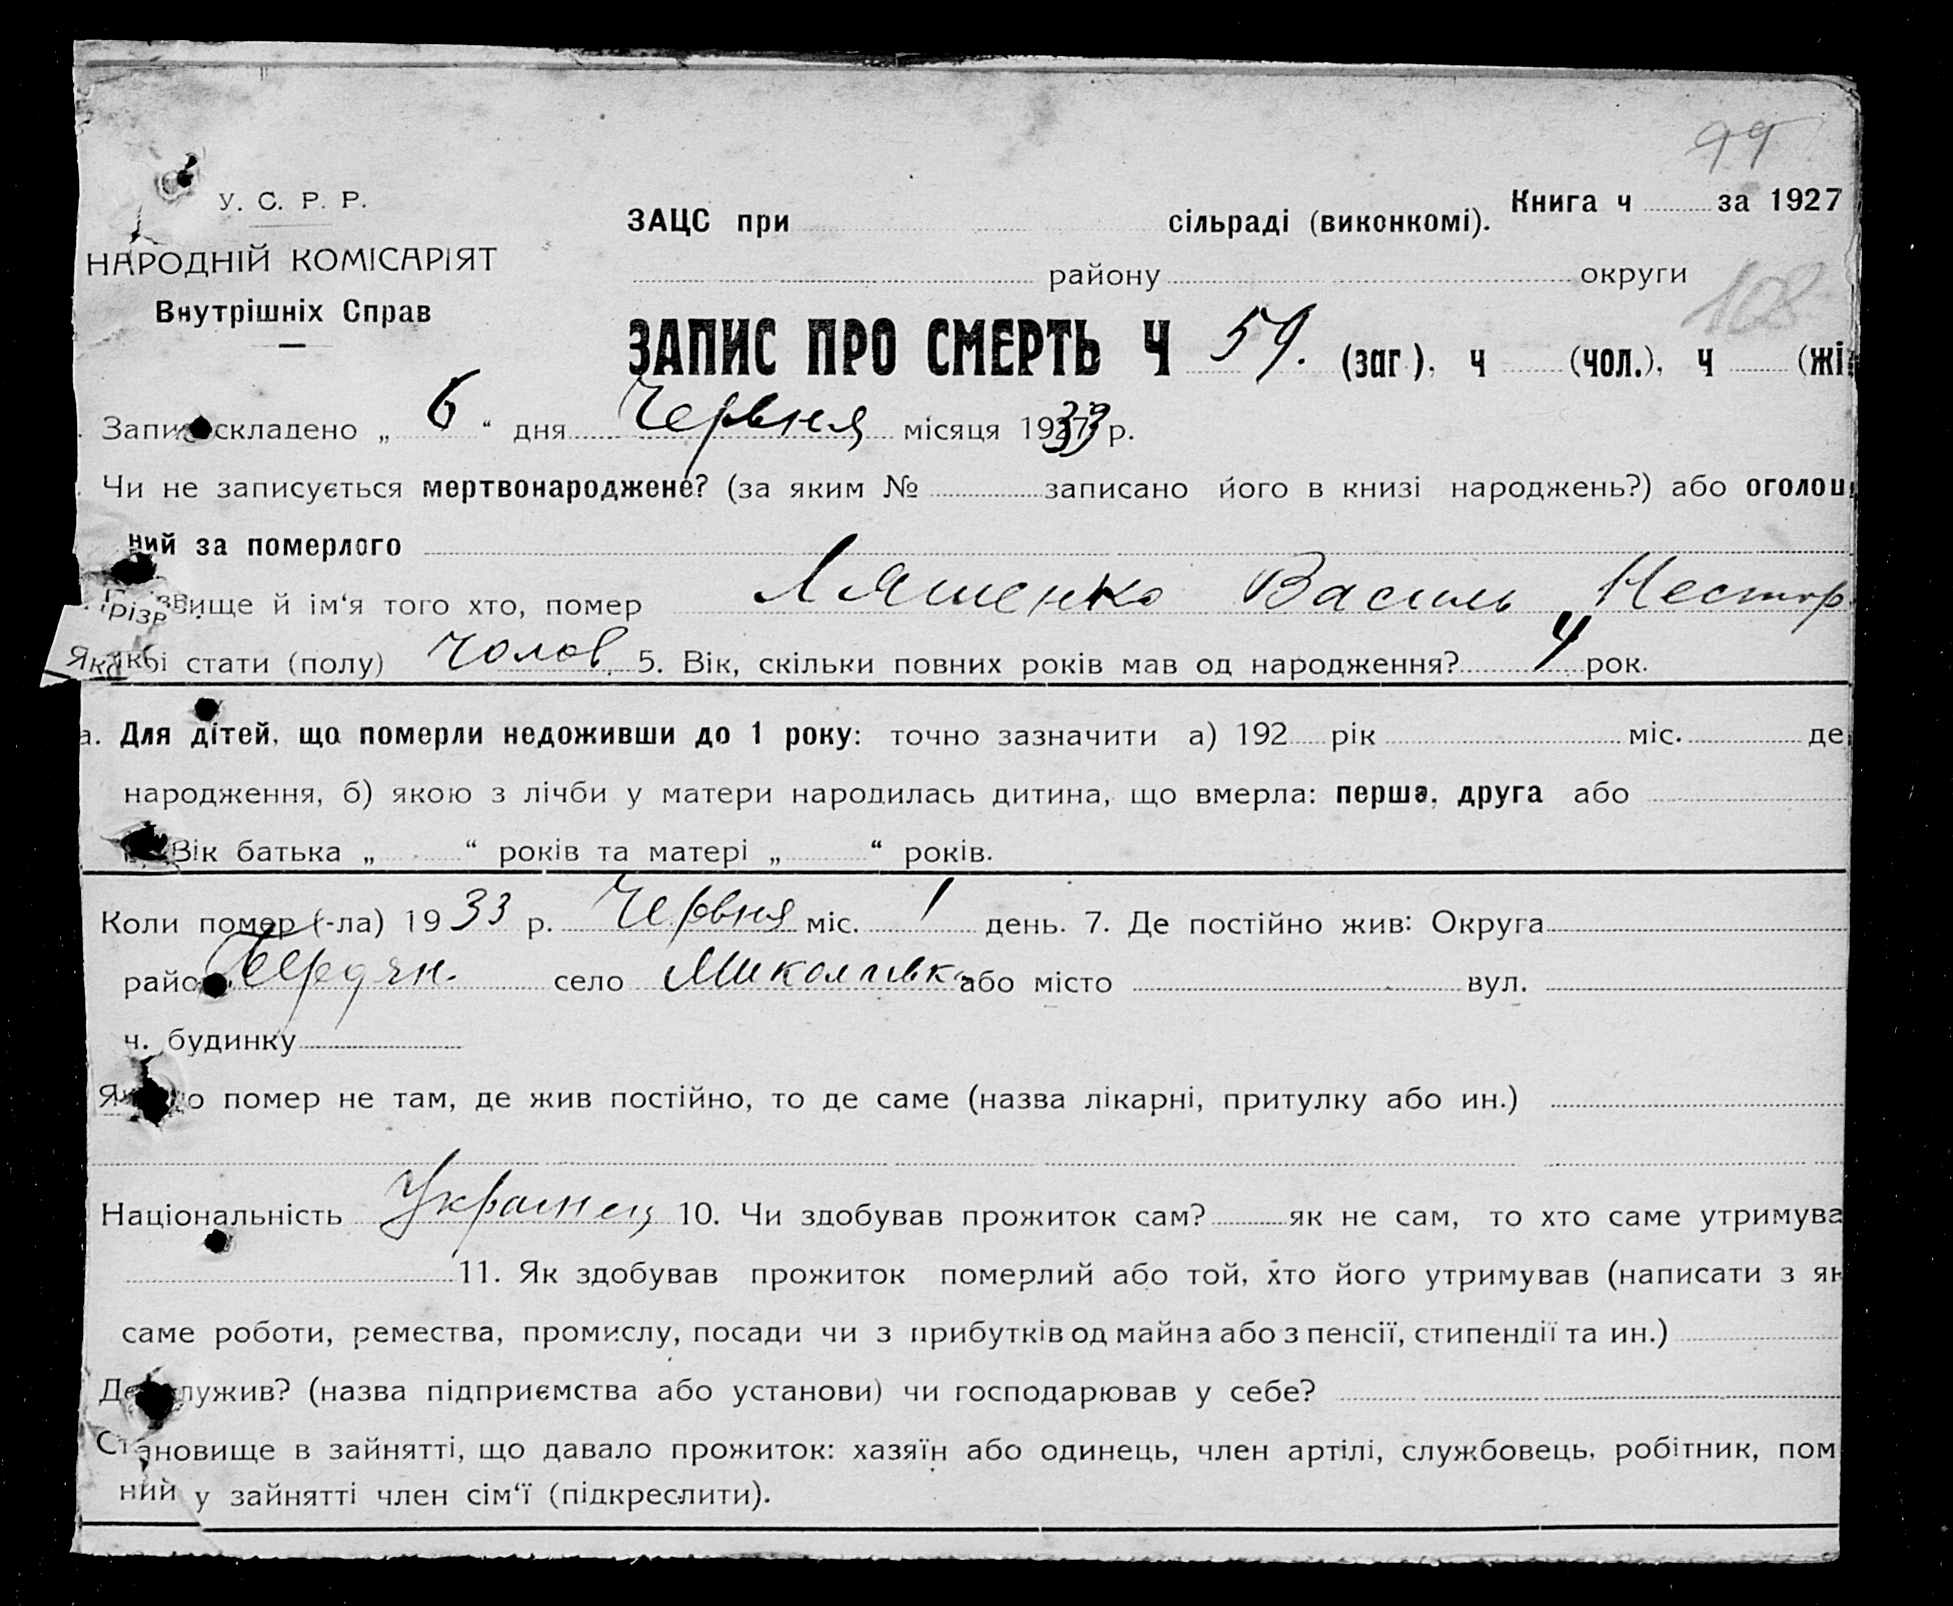 99
У. С. Р. Р.
НАРОДНІЙ КОМІСАРІЯТ
Внутрішніх Справ
Книга ч за 1927
ЗАЦС при сільраді (виконкомі).
району округи
108
ЗАПИС ПРО СМЕРТЬ Ч 59. (заг.), ч (чол.), ч (жі
Запис складено „ 6 “ дня Червня місяця 1933 р.
Чи не записується мертвонароджене? (за яким № записано його в книзі народжень?) або оголош
ний за померлого
Прізвище й ім‘я того хто, помер Ляшенко Василь Нестор
якої стати (полу) чолов 5. Вік, скільки повних років мав од народження? 4 рок.
а. Для дітей, що померли недоживши до 1 року: точно зазначити а) 192 рік міс. де
народження, б) якою з лічби у матери народилась дитина, що вмерла: перша, друга або
Вік батька „ “ років та матері „ “ років.
Коли помер (-ла) 1933 р. Червня міс. 1 день. 7. Де постійно жив: Округа
район Бердян. село Миколаївка або місто вул.
ч. будинку
Якщо помер не там, де жив постійно, то де саме (назва лікарні, притулку або ин.)
Національність Українец 10. Чи здобував прожиток сам? як не сам, то хто саме утримува
11. Як здобував прожиток померлий або той, хто його утримував (написати з як
саме роботи, ремества, промислу, посади чи з прибутків од майна або з пенсії, стипендії та ин.)
Де служив? (назва підприємства або установи) чи господарював у себе?
Становище в зайнятті, що давало прожиток: хазяїн або одинець, член артілі, службовець, робітник, пом
ний у зайнятті член сім‘ї (підкреслити).